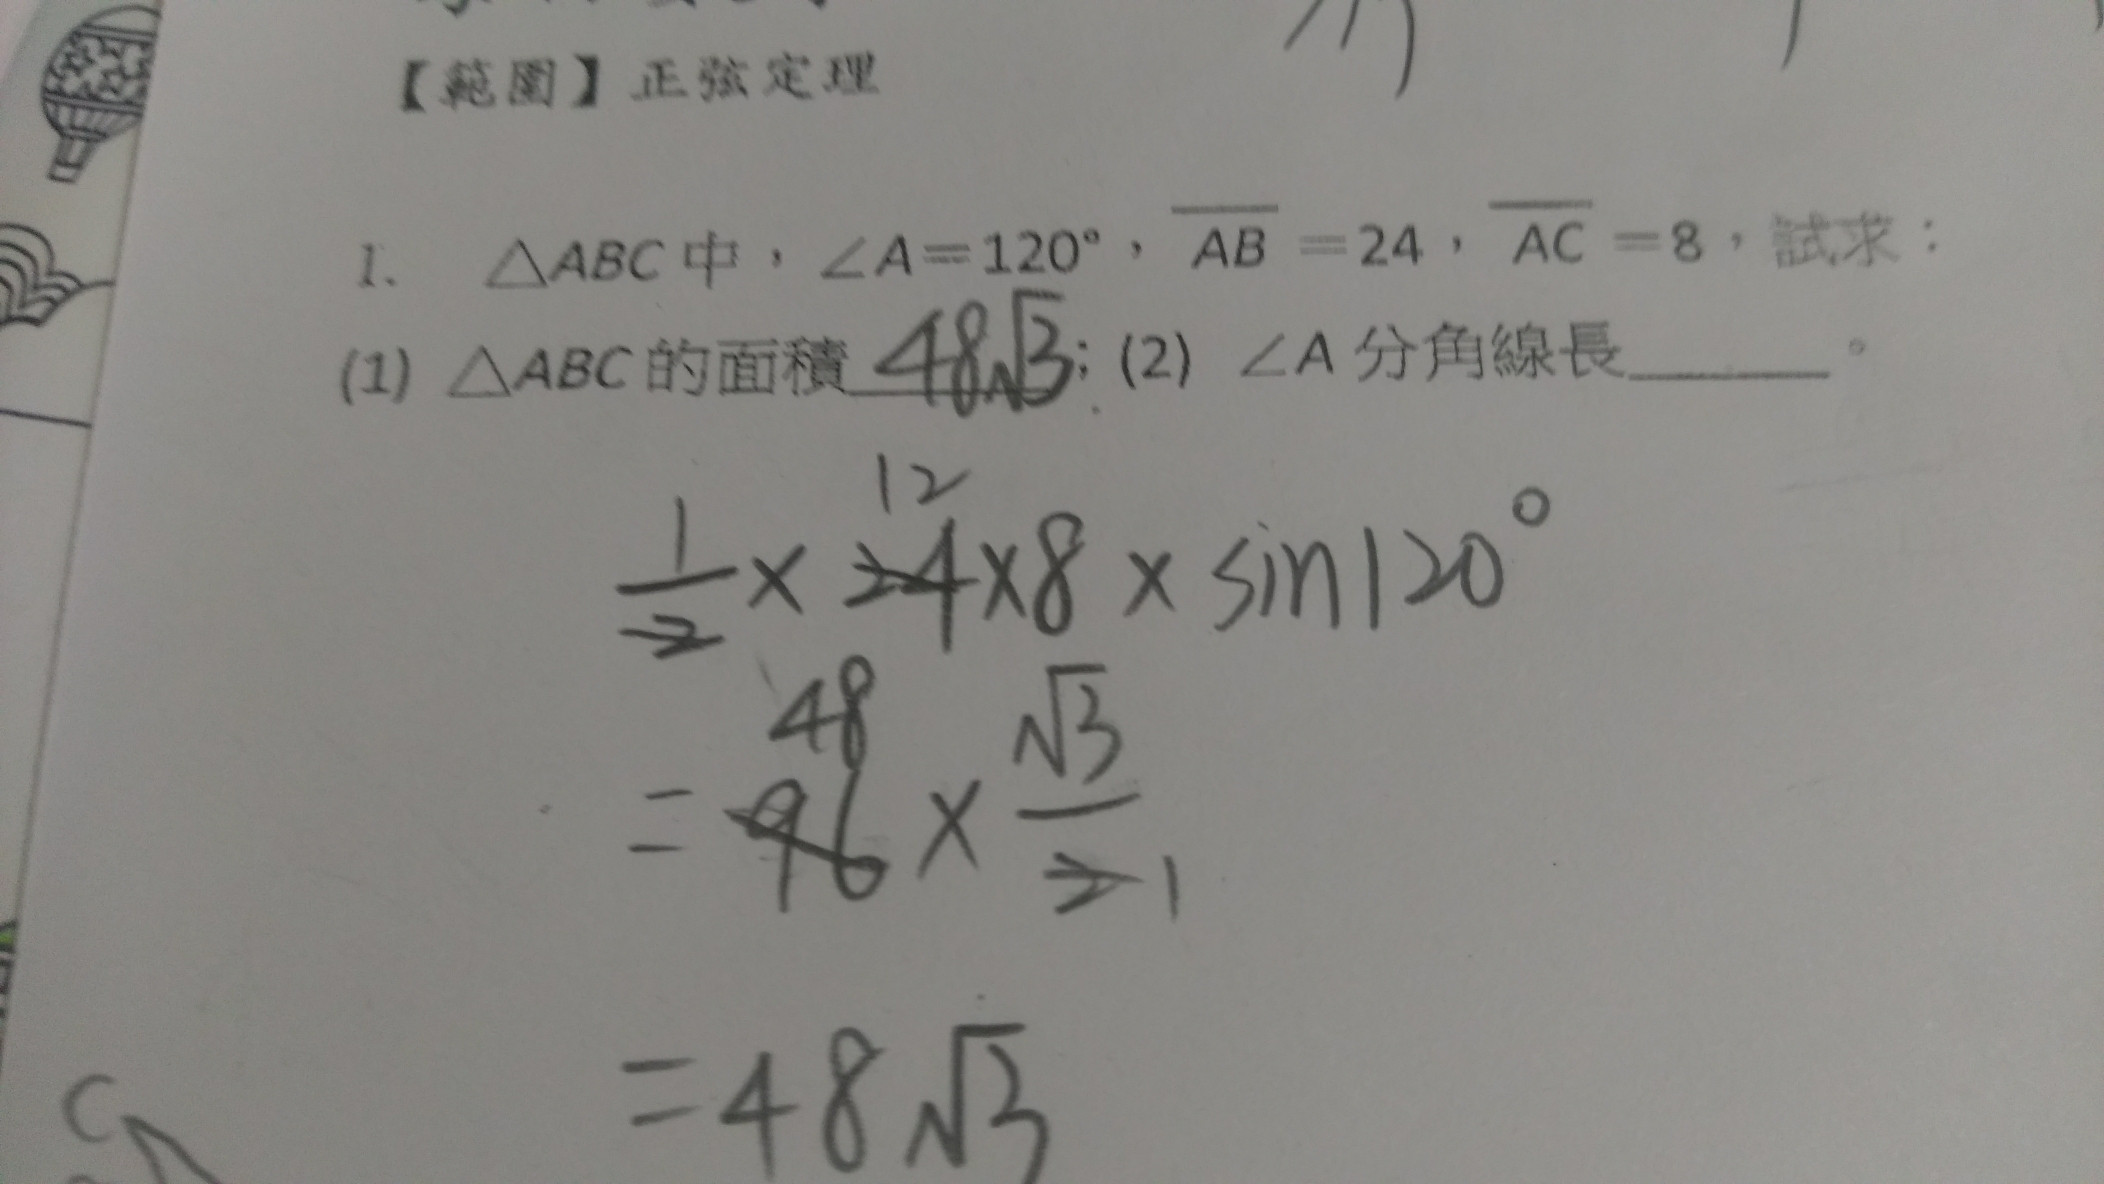 【範圍】正弦定理
1. △ABC中，∠A＝120°，AB＝24，AC＝8，試求：
(1) △ABC的面積 48√3；(2) ∠A分角線長______。
12
1/2 × 24 × 8 × sin120°
48
= 96 × √3/2 1
= 48√3
C